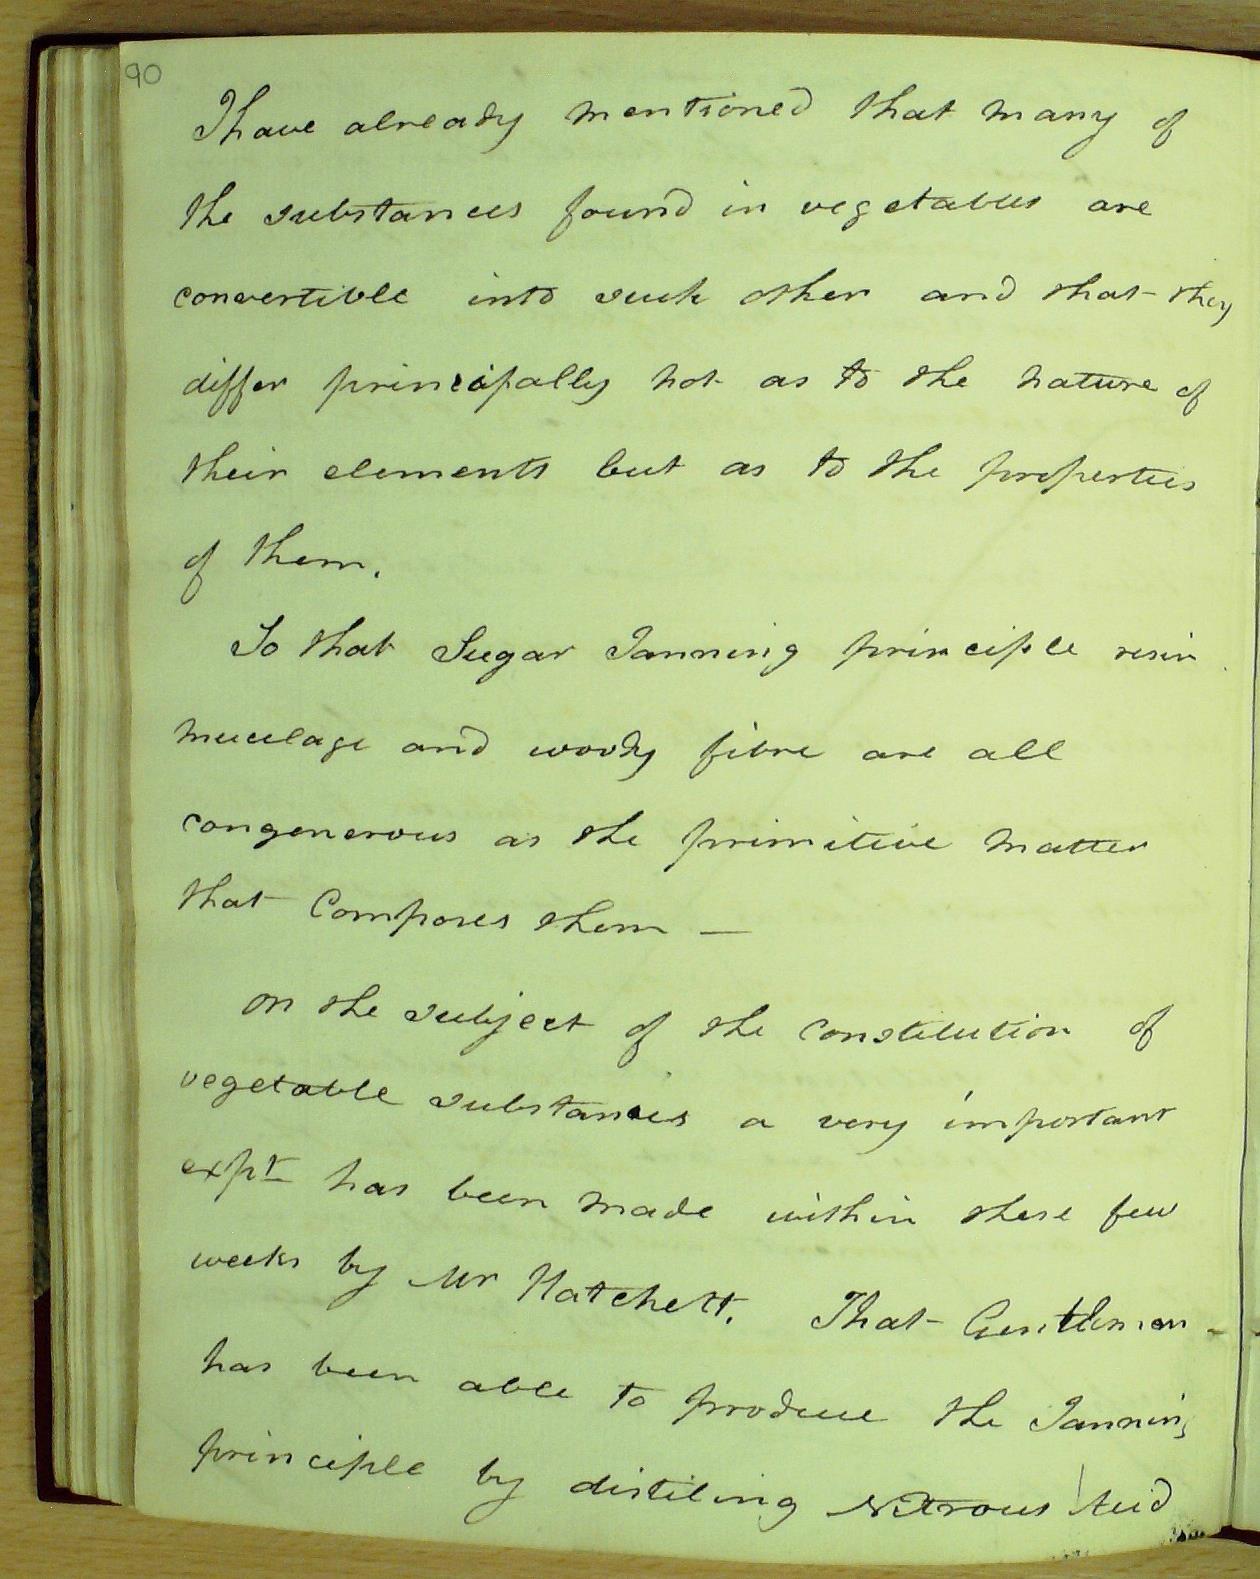 90
I have already mentioned that many of
the substances found in vegetables are
convertible into such other and that they
differ principally not as to the nature of
their elements but as to the properties
of them.
So that Sugar Tanning principle resin
mucilage and woody fibre are all
congenerous as the primitive matter
that Composes them —
on the subject of the constitution of
vegetable substances a very important
expt has been made within these few
weeks by Mr Hatchett. That Gentleman
has been able to produce the Tanning
principle by distiling Nitrous Acid